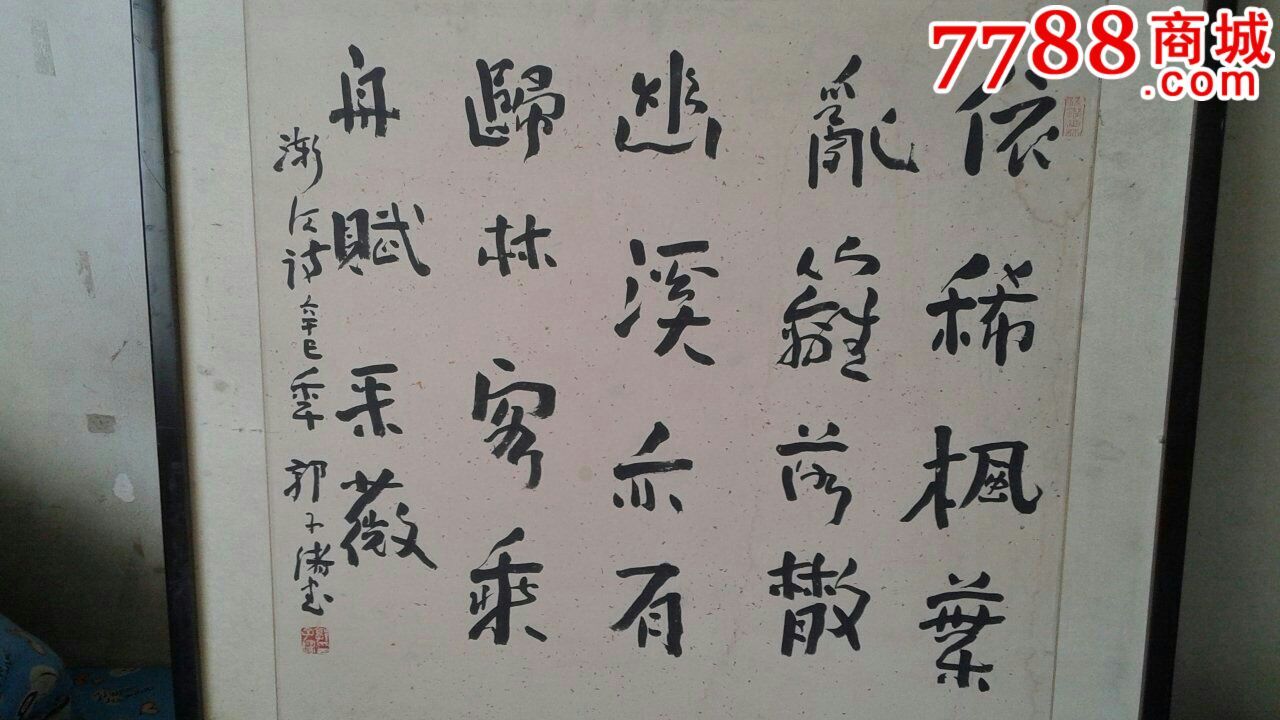 7788商城
.com
依稀楓葉
亂籬落散
幽溪亦有
歸林客乘
舟賦采薇
漸江诗辛巳秊郭子緒书